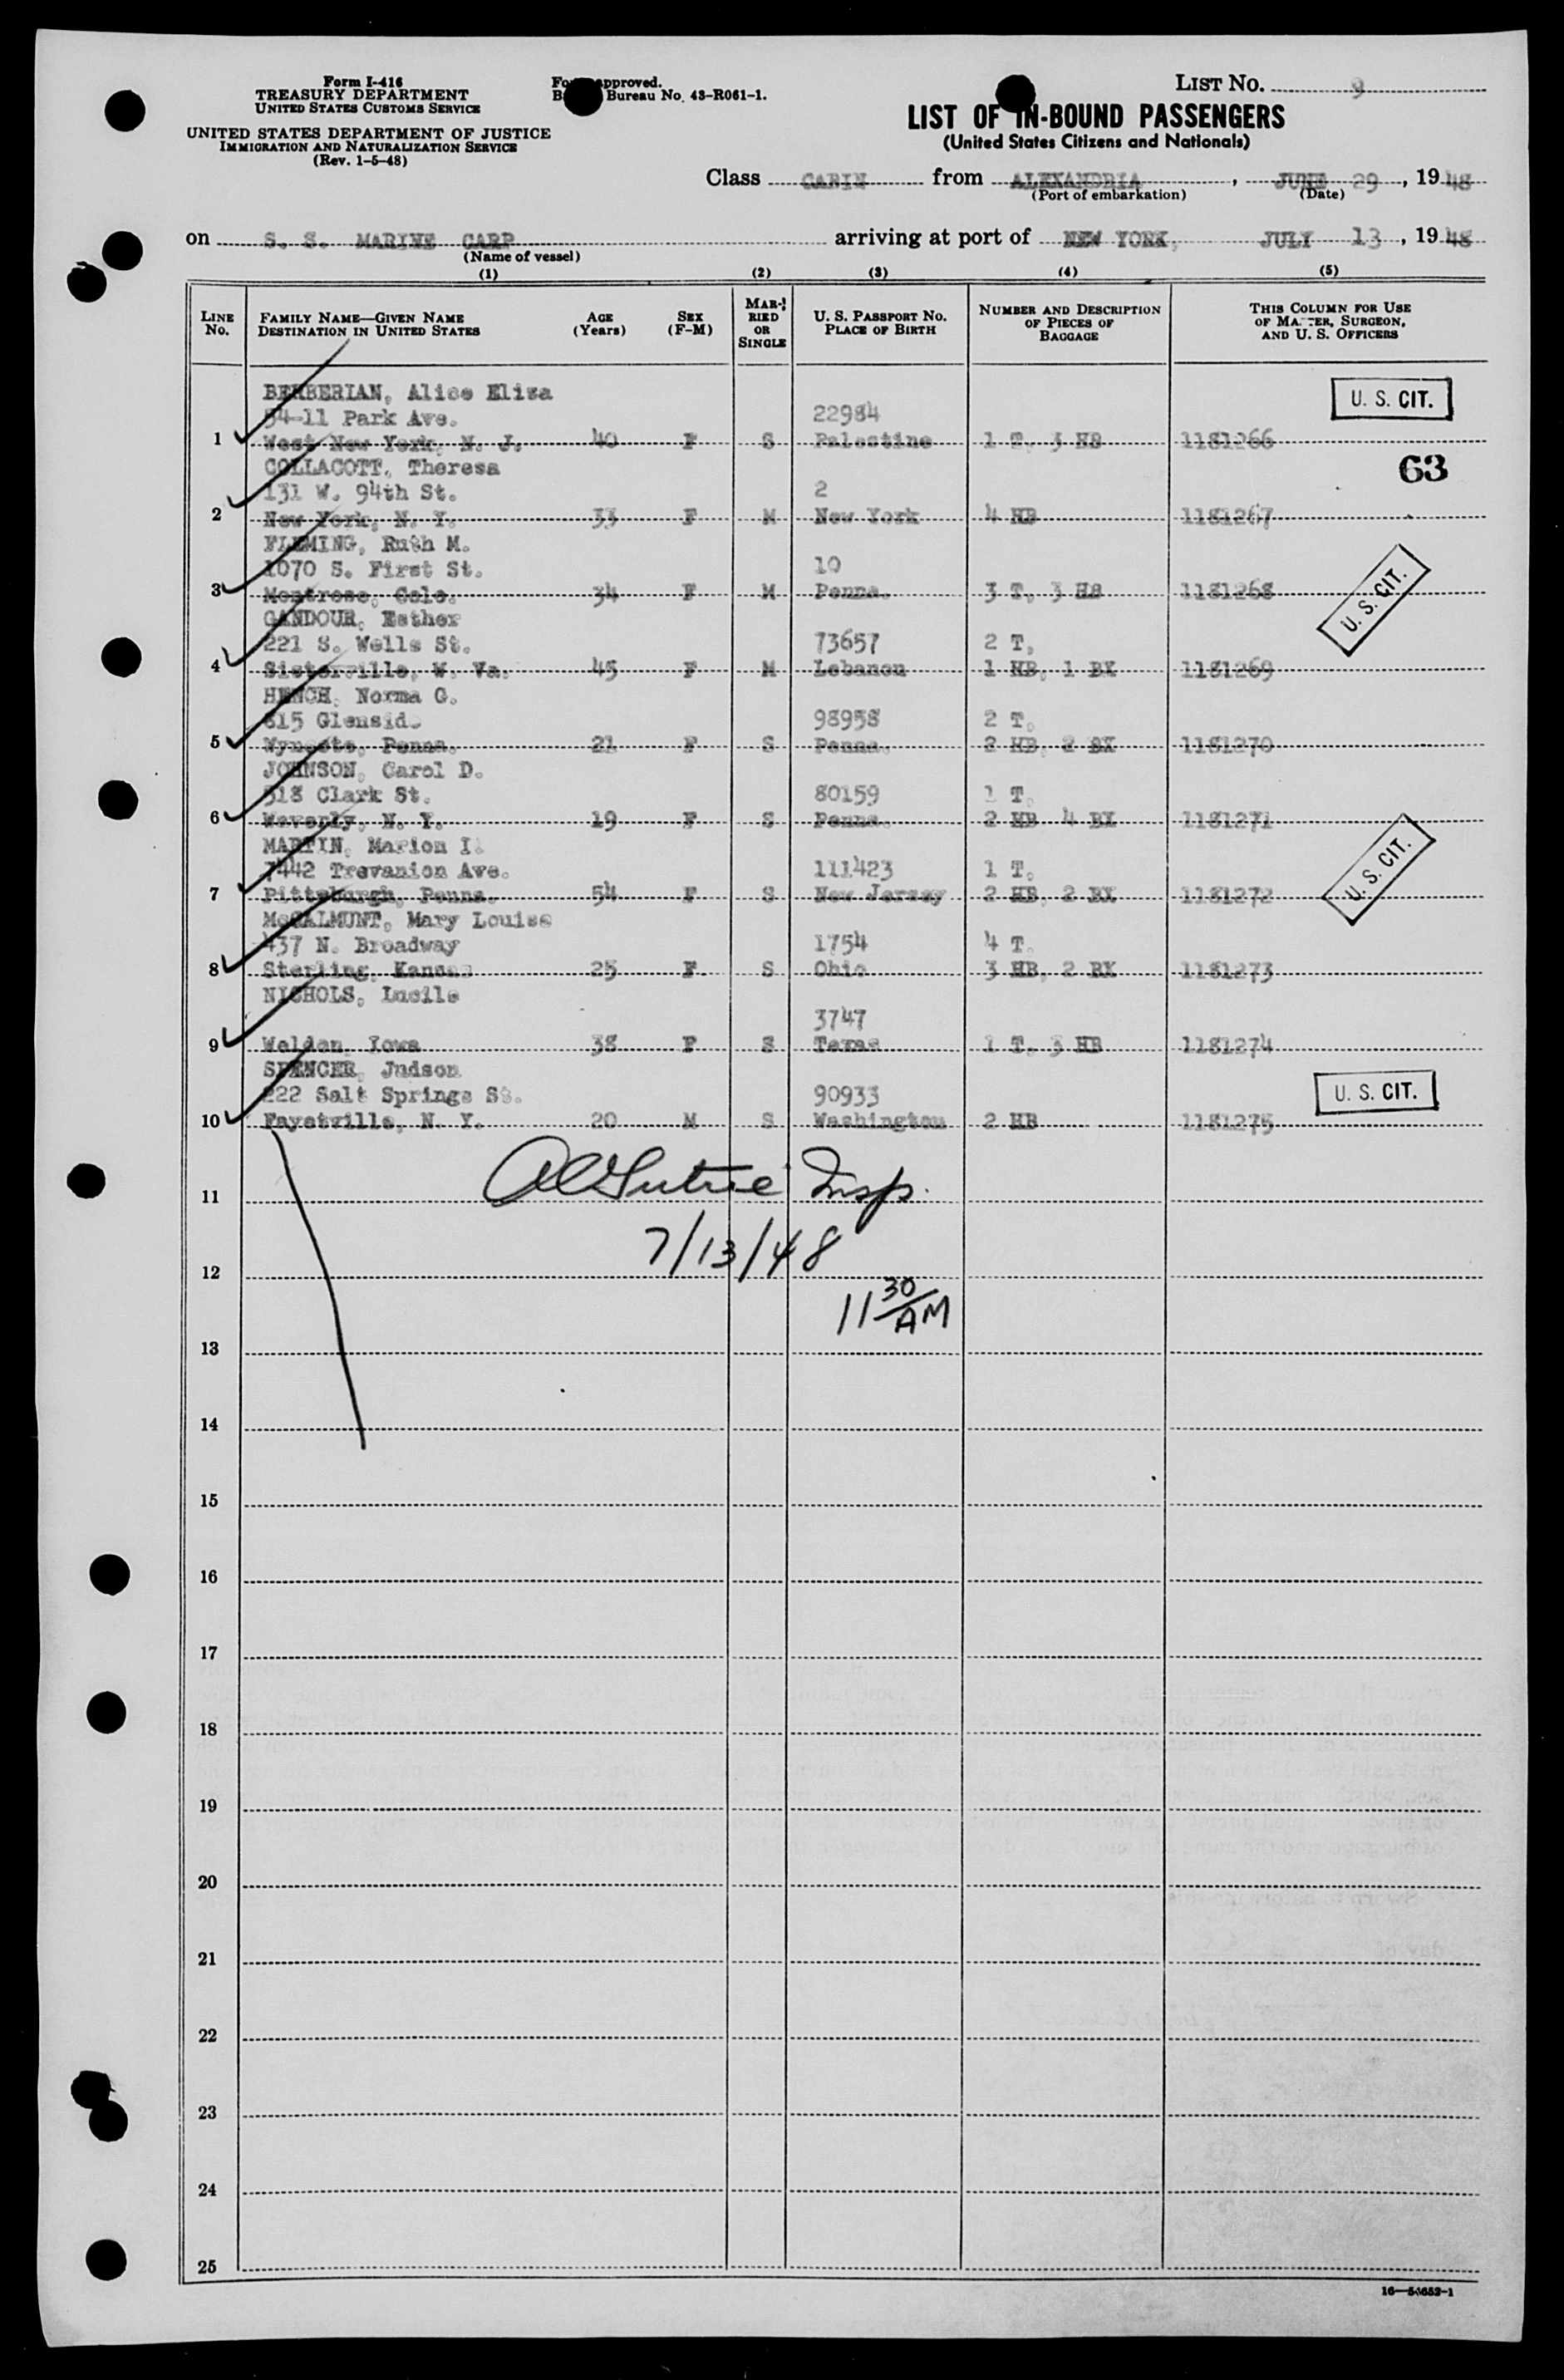 Form I-416
TREASURY DEPARTMENT
UNITED STATES CUSTOMS SERVICE
UNITED STATES DEPARTMENT OF JUSTICE
IMMIGRATION AND NATURALIZATION SERVICE
(Rev. 1-5-48)
approved.
Bureau No. 43-R061-1.
LIST NO. 9
LIST OF IN-BOUND PASSENGERS
(United States Citizens and Nationals)
Class CABIN from ALEXANDRIA, JUNE 29, 1948
(Port of embarkation) (Date)
on S. S. MARINE CARP arriving at port of NEW YORK, JULY 13, 1948
(Name of vessel)
(1) (2) (3) (4) (5)
LINE NO. FAMILY NAME—GIVEN NAME DESTINATION IN UNITED STATES AGE (Years) SEX (F-M) MARRIED OR SINGLE U. S. PASSPORT NO. PLACE OF BIRTH NUMBER AND DESCRIPTION OF PIECES OF BAGGAGE THIS COLUMN FOR USE OF MASTER, SURGEON, AND U. S. OFFICERS
BERBERIAN, Alice Eliza U. S. CIT.
54-11 Park Ave. 22984
1 West New York, N. J. 40 F S Palestine 1 T, 3 HB 1181266
COLLACOTT, Theresa 63
131 W. 94th St. 2
2 New York, N. Y. 33 F M New York 4 HB 1181267
FLEMING, Ruth M.
1070 S. First St. 10
3 Montrose, Colo. 34 F M Penna. 3 T, 3 HB 1181268 U. S. CIT.
GANDOUR, Esther
221 S. Wells St. 73657 2 T,
4 Sisterville, W. Va. 45 F M Lebanon 1 HB, 1 BX 1181269
HENCH, Norma G.
615 Glensid 98958 2 T,
5 Wyncote, Penna. 21 F S Penna. 2 HB, 2 BX 1181270
JOHNSON, Carol D.
518 Clark St. 80159 1 T,
6 Waverly, N. Y. 19 F S Penna. 2 HB 4 BX 1181271
MARTIN, Marion I.
7442 Trevanion Ave. 111423 1 T,
7 Pittsburgh, Penna. 54 F S New Jersey 2 HB, 2 BX 1181272 U. S. CIT.
McCALMUNT, Mary Louise
437 N. Broadway 1754 4 T.
8 Sterling, Kansas 25 F. S Ohio 3 HB, 2 BX 1181273
NICHOLS, Lucile
3747
9 Weldon, Iowa 38 F S Texas 1 T, 3 HB 1181274
SPENCER, Judson
222 Salt Springs St. 90933 U. S. CIT.
10 Fayetville, N. Y. 20 M S Washington 2 HB 1181275
Insp.
11
7/13/48
12
11 30 AM
13
14
15
16
17
18
19
20
21
22
23
24
25